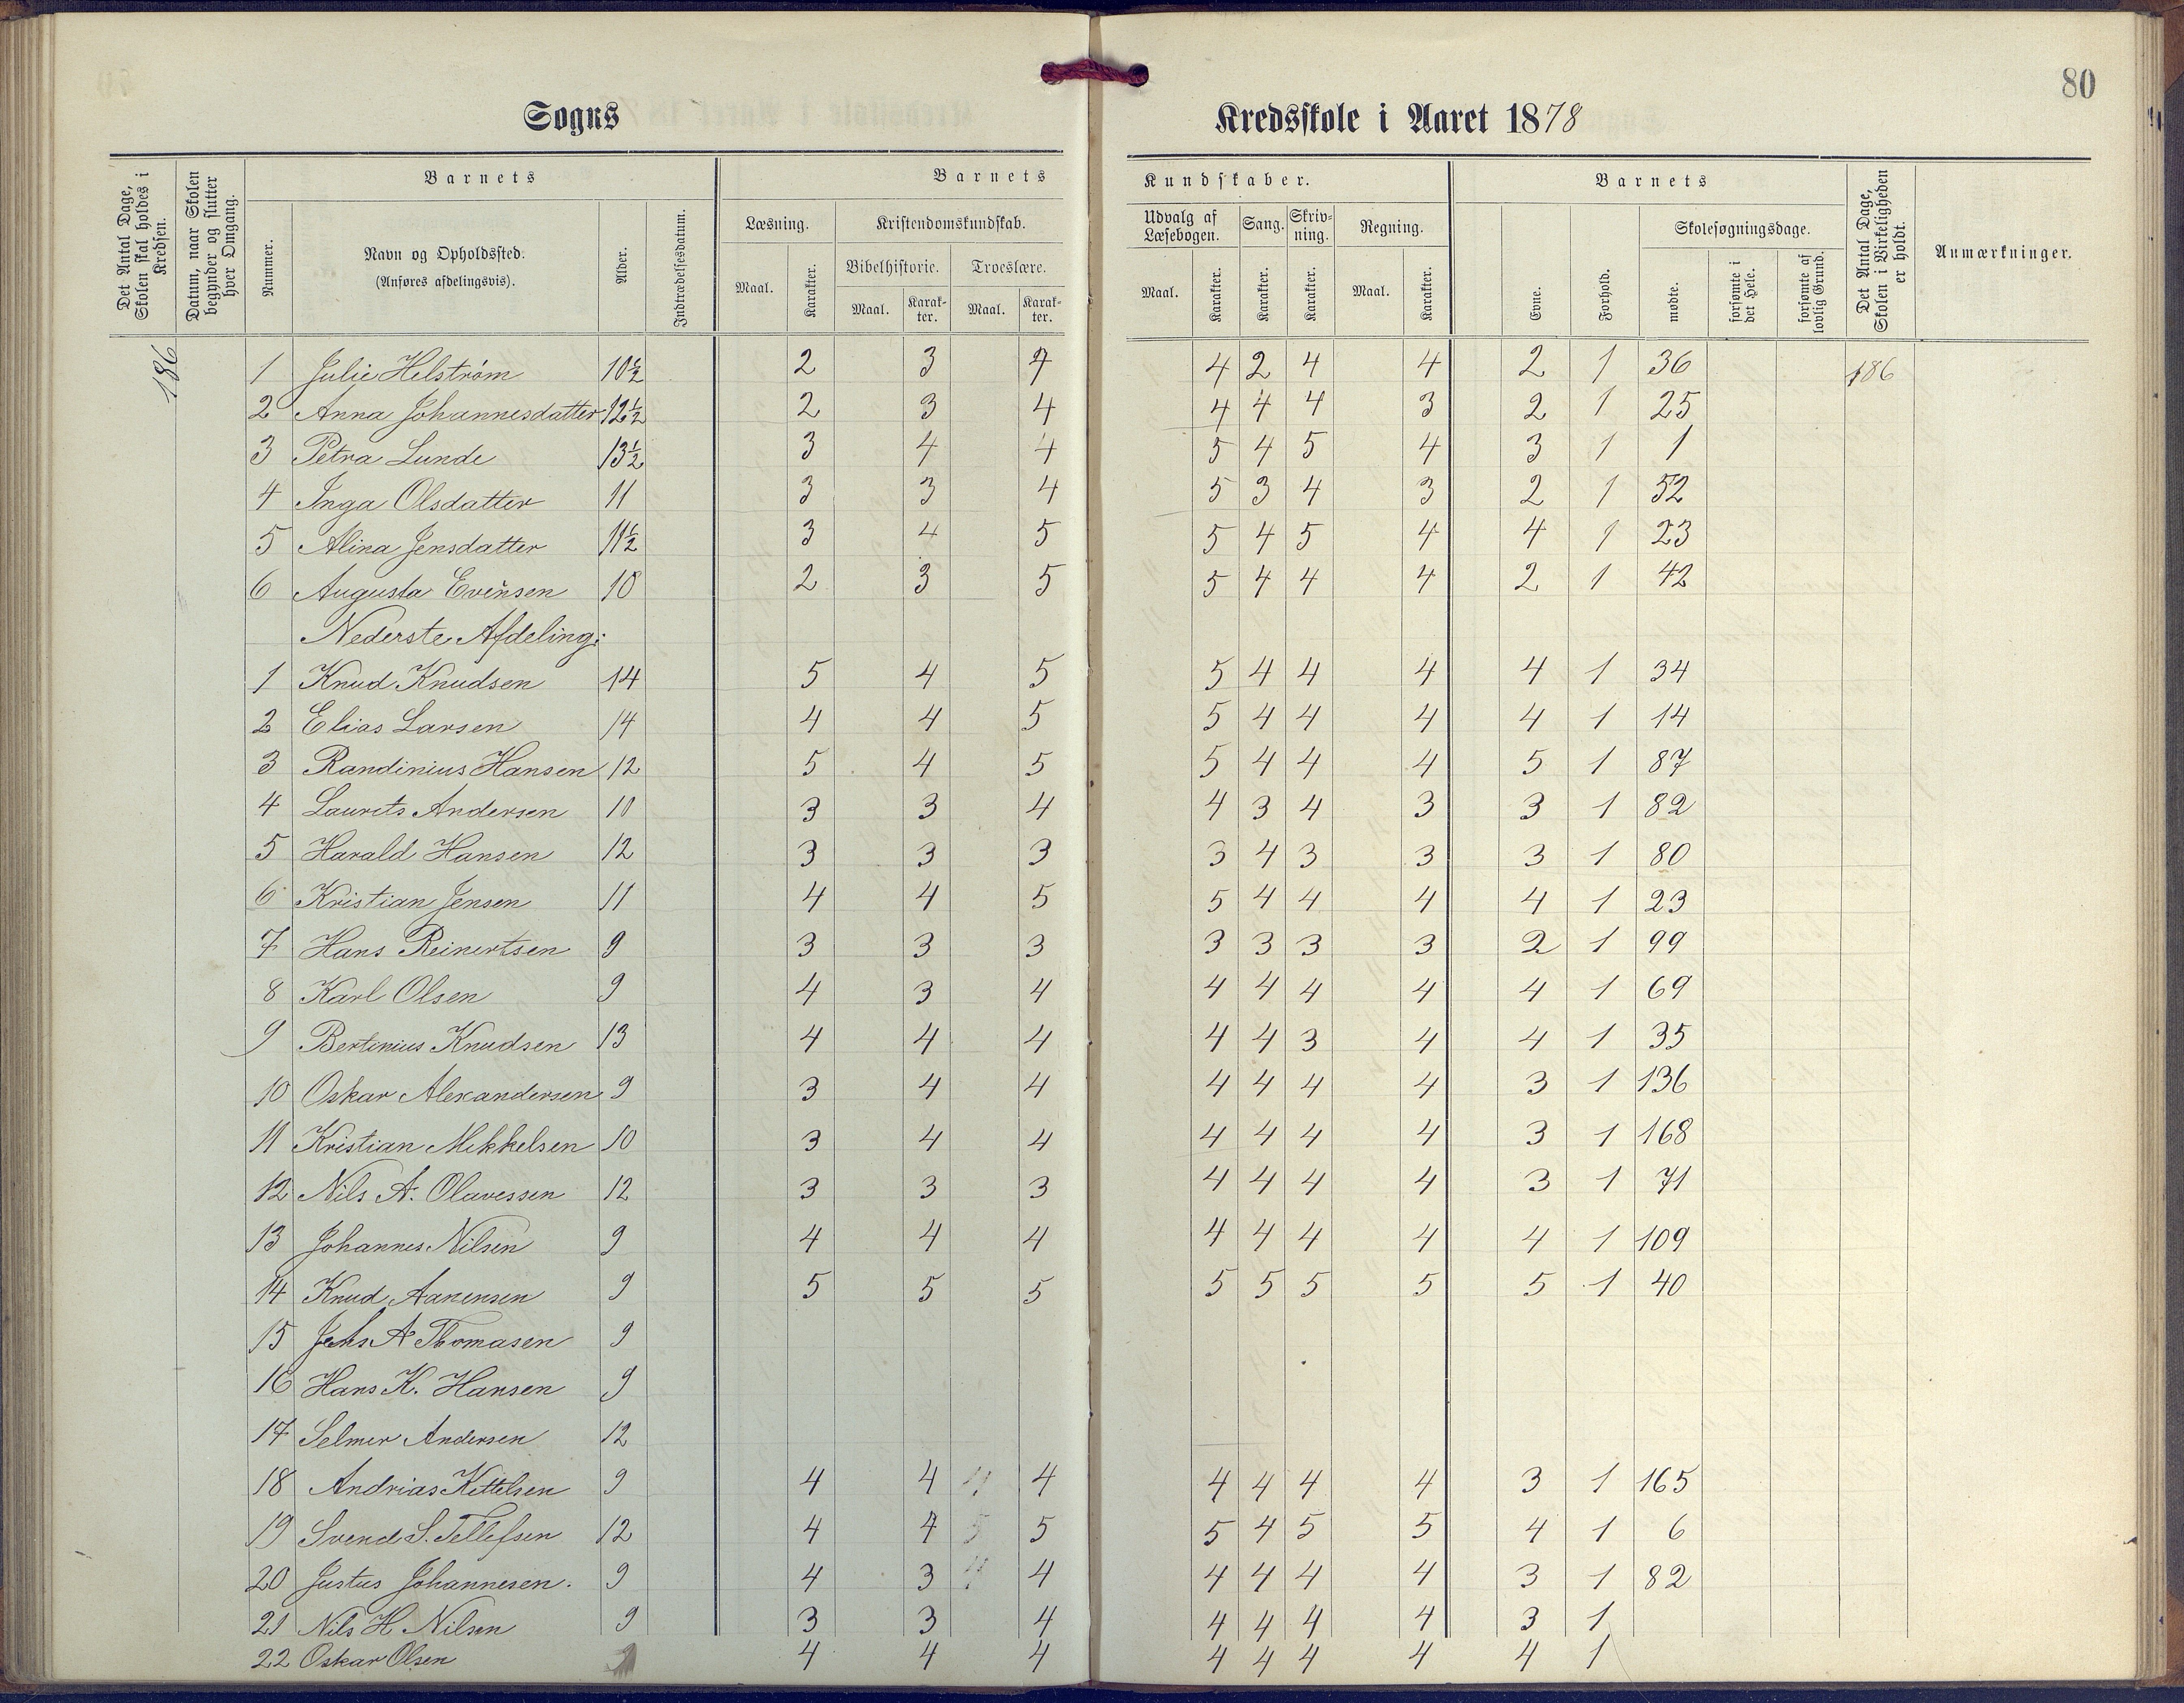 80
Sogns Kredsskole i Aaret 1878
Det Antal Dage, Skolen skal holdes i Kredsen.
Datum, naar Skolen begynder og slutter hver Omgang.
Barnets
Nummer.
Navn og Opholdssted.
(Anføres afdelingsvis).
Alder.
Indtrædelsesdatum.
Barnets Kundskaber.
Læsning.
Maal. Karakter.
Kristendomskundskab.
Bibelhistorie. Troeslære.
Maal. Karakter. Maal. Karakter.
Udvalg af Læsebogen.
Maal. Karakter.
Sang.
Karakter.
Skrivning.
Karakter.
Regning.
Maal. Karakter.
Barnets
Evne.
Forhold.
Skolesøgningsdage.
mødte.
forsømte i det Hele.
forsømte af lovlig Grund.
Det Antal Dage, Skolen i Virkeligheden er holdt.
Anmærkninger.
186 1 Julie Helstrøm 10½ 2 3 4 4 2 4 4 2 1 36 186
2 Anna Johannesdatter 12½ 2 3 4 4 4 4 3 2 1 25
3 Petra Lunde 13½ 3 4 4 5 4 5 4 3 1 1
4 Inga Olsdatter 11 3 3 4 5 3 4 3 2 1 52
5 Alina Jensdatter 11½ 3 4 5 5 4 5 4 4 1 23
6 Augusta Evensen 10 2 3 5 5 4 4 4 2 1 42
Nederste Afdeling:
1 Knud Knudsen 14 5 4 5 5 4 4 4 4 1 34
2 Elias Larsen 14 4 4 5 5 4 4 4 4 1 14
3 Randinius Hansen 12 5 4 5 5 4 4 4 5 1 87
4 Laurits Andersen 10 3 3 4 4 3 4 3 3 1 82
5 Harald Hansen 12 3 3 3 3 4 3 3 3 1 80
6 Kristian Jensen 11 4 4 5 5 4 4 4 4 1 23
7 Hans Reinertsen 9 3 3 3 3 3 3 3 2 1 99
8 Karl Olsen 9 4 3 4 4 4 4 4 4 1 69
9 Bertinius Knudsen 13 4 4 4 4 4 3 4 4 1 35
10 Oskar Alexandersen 9 3 4 4 4 4 4 4 3 1 136
11 Kristian Mikkelsen 10 3 4 4 4 4 4 4 3 1 168
12 Nils A. Olavessen 12 3 3 3 4 4 4 4 3 1 71
13 Johannes Nilsen 9 4 4 4 4 4 4 4 4 1 109
14 Knud Aanensen 9 5 5 5 5 5 5 5 5 1 40
15 Jens A Thomasen 9
16 Hans K. Hansen 9
17 Selmer Andersen 12
18 Andrias Kittelsen 9 4 4 4 4 4 4 4 4 3 1 165
19 Svend S. Tellefsen 12 4 4 5 5 5 4 5 5 4 1 6
20 Justus Johannesen. 9 4 3 4 4 4 4 4 4 3 1 82
21 Nils H Nilsen 9 3 3 4 4 4 4 4 3 1
22 Oskar Olsen 4 4 4 4 4 4 4 4 1